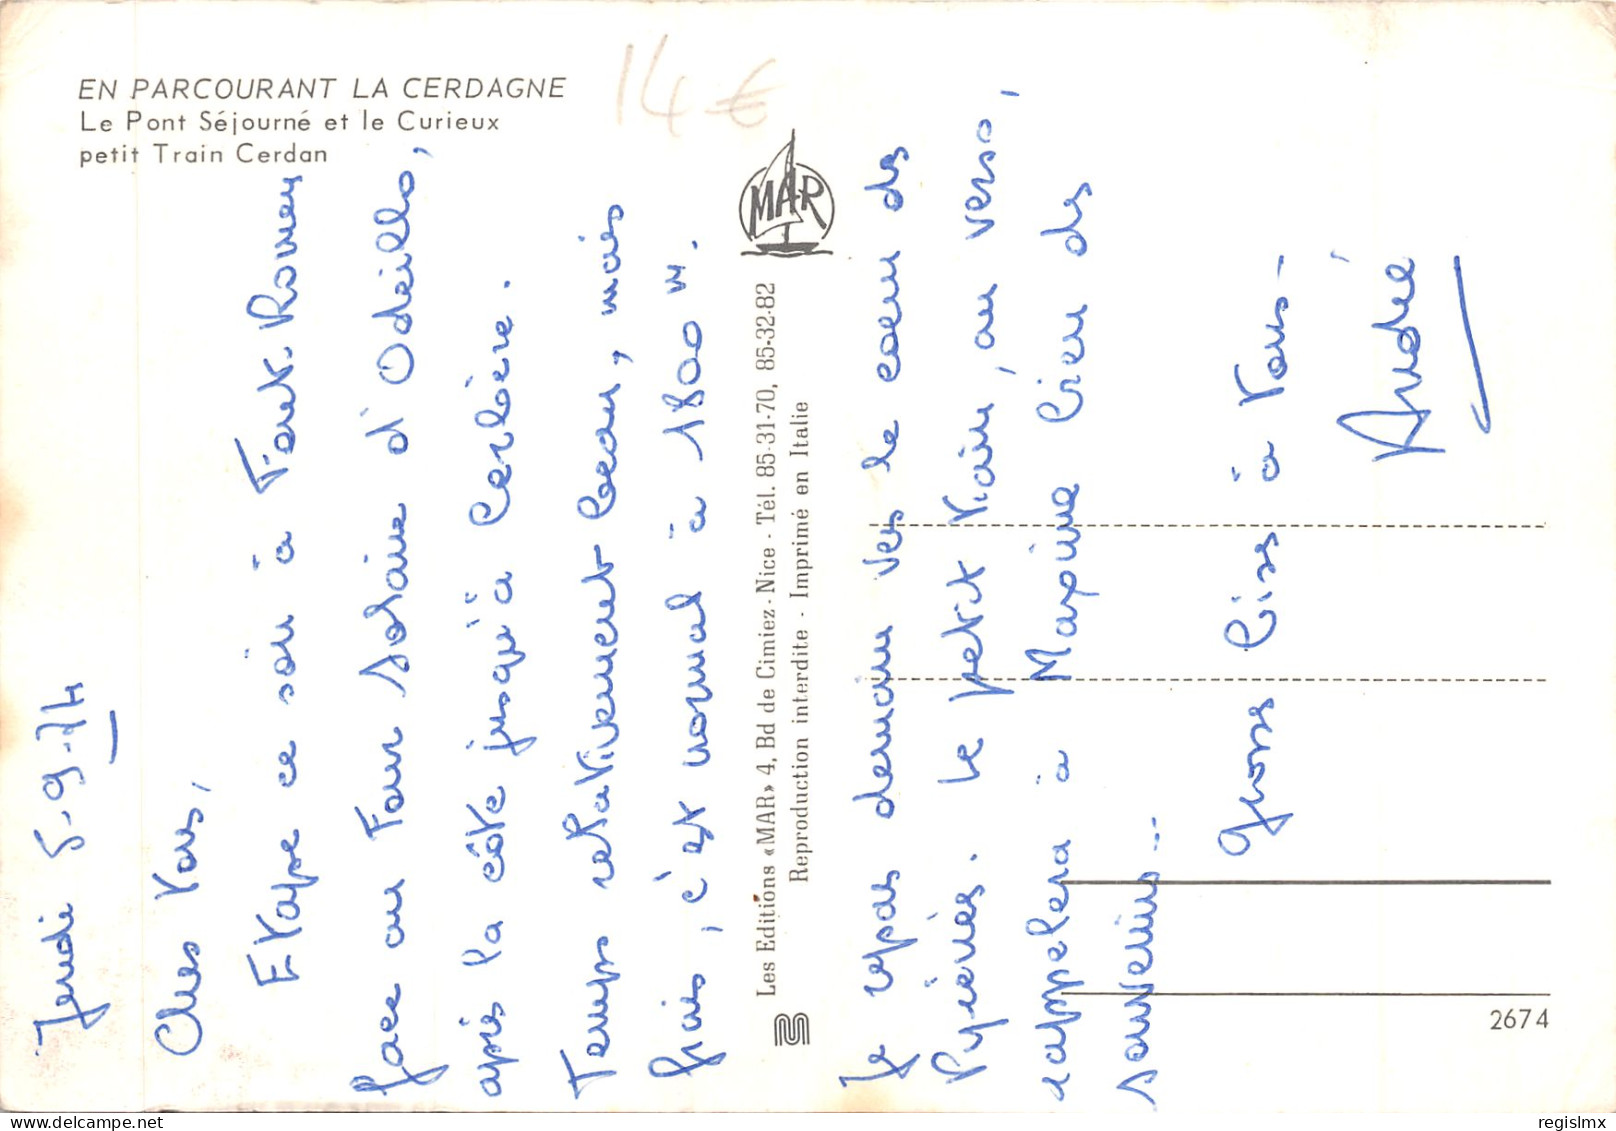 EN PARCOURANT LA CERDAGNE
Le Pont Séjourné et le Curieux
petit Train Cerdan
14 €
MAR
Les Editions «MAR» 4, Bd de Cimiez - Nice - Tél. 85-31-70, 85-32-82
Reproduction interdite - Imprimé en Italie
2674
Jeudi 5-9-74
Chers Vous,
Etape ce soir à Font-Romeu
face au Four Solaire d'Odeillo,
après la côte jusqu'à Cerbère.
Temps relativement beau, mais
frais, c'est normal à 1800 m.
Je repars demain vers le coeur des
Pyrénées. Le petit train, au verso,
rappelera à Maxime bien des
souvenirs...
Grosses bises à Vous -
André
regislmx